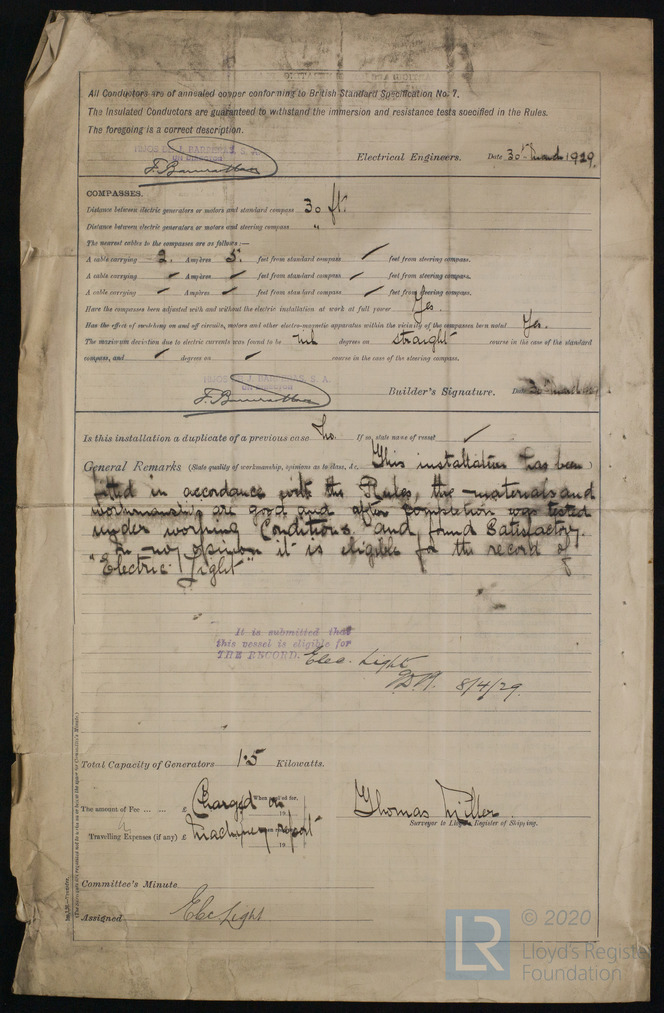 All Conductors are of annealed copper conforming to British Standard Specification No. 7.
The Insulated Conductors are guaranteed to withstand the immersion and resistance tests specified in the Rules.
The foregoing is a correct description.
HIJOS DE J. BARRERAS, S. A.
UN DIRECTOR
Electrical Engineers. Date 30th March 1929.
COMPASSES.
Distance between electric generators or motors and standard compass 30 ft.
Distance between electric generators or motors and steering compass "
The nearest cables to the compasses are as follows:—
A cable carrying 2. Ampères 5. feet from standard compass / feet from steering compass.
A cable carrying / Ampères / feet from standard compass / feet from steering compass.
A cable carrying / Ampères / feet from standard compass / feet from steering compass.
Have the compasses been adjusted with and without the electric installation at work at full power Yes.
Has the effect of switching on and off circuits, motors and other electro-magnetic apparatus within the vicinity of the compasses been noted Yes.
The maximum deviation due to electric currents was found to be nil degrees on straight course in the case of the standard
compass, and / degrees on / course in the case of the steering compass.
HIJOS DE J. BARRERAS, S. A.
UN DIRECTOR
Builder's Signature. Date 30th March
Is this installation a duplicate of a previous case No. If so, state name of vessel /
General Remarks (State quality of workmanship, opinions as to class, &c. This installation has been
fitted in accordance with the Rules, the materials and
workmanship are good and after completion was tested
under working Conditions and found Satisfactory.
In my opinion it is eligible for the record of
"Electric Light"
It is submitted that
this vessel is eligible for
THE RECORD. Elec. Light
8/4/29.
Total Capacity of Generators 1.5 Kilowatts.
The amount of Fee ... ... £ Charged on When applied for,
19
Thomas Miller
Surveyor to Lloyd's Register of Shipping.
Travelling Expenses (if any) £ Machinery report
19
Committee's Minute
Assigned Elec Light
LR © 2020
Lloyd's Register
Foundation